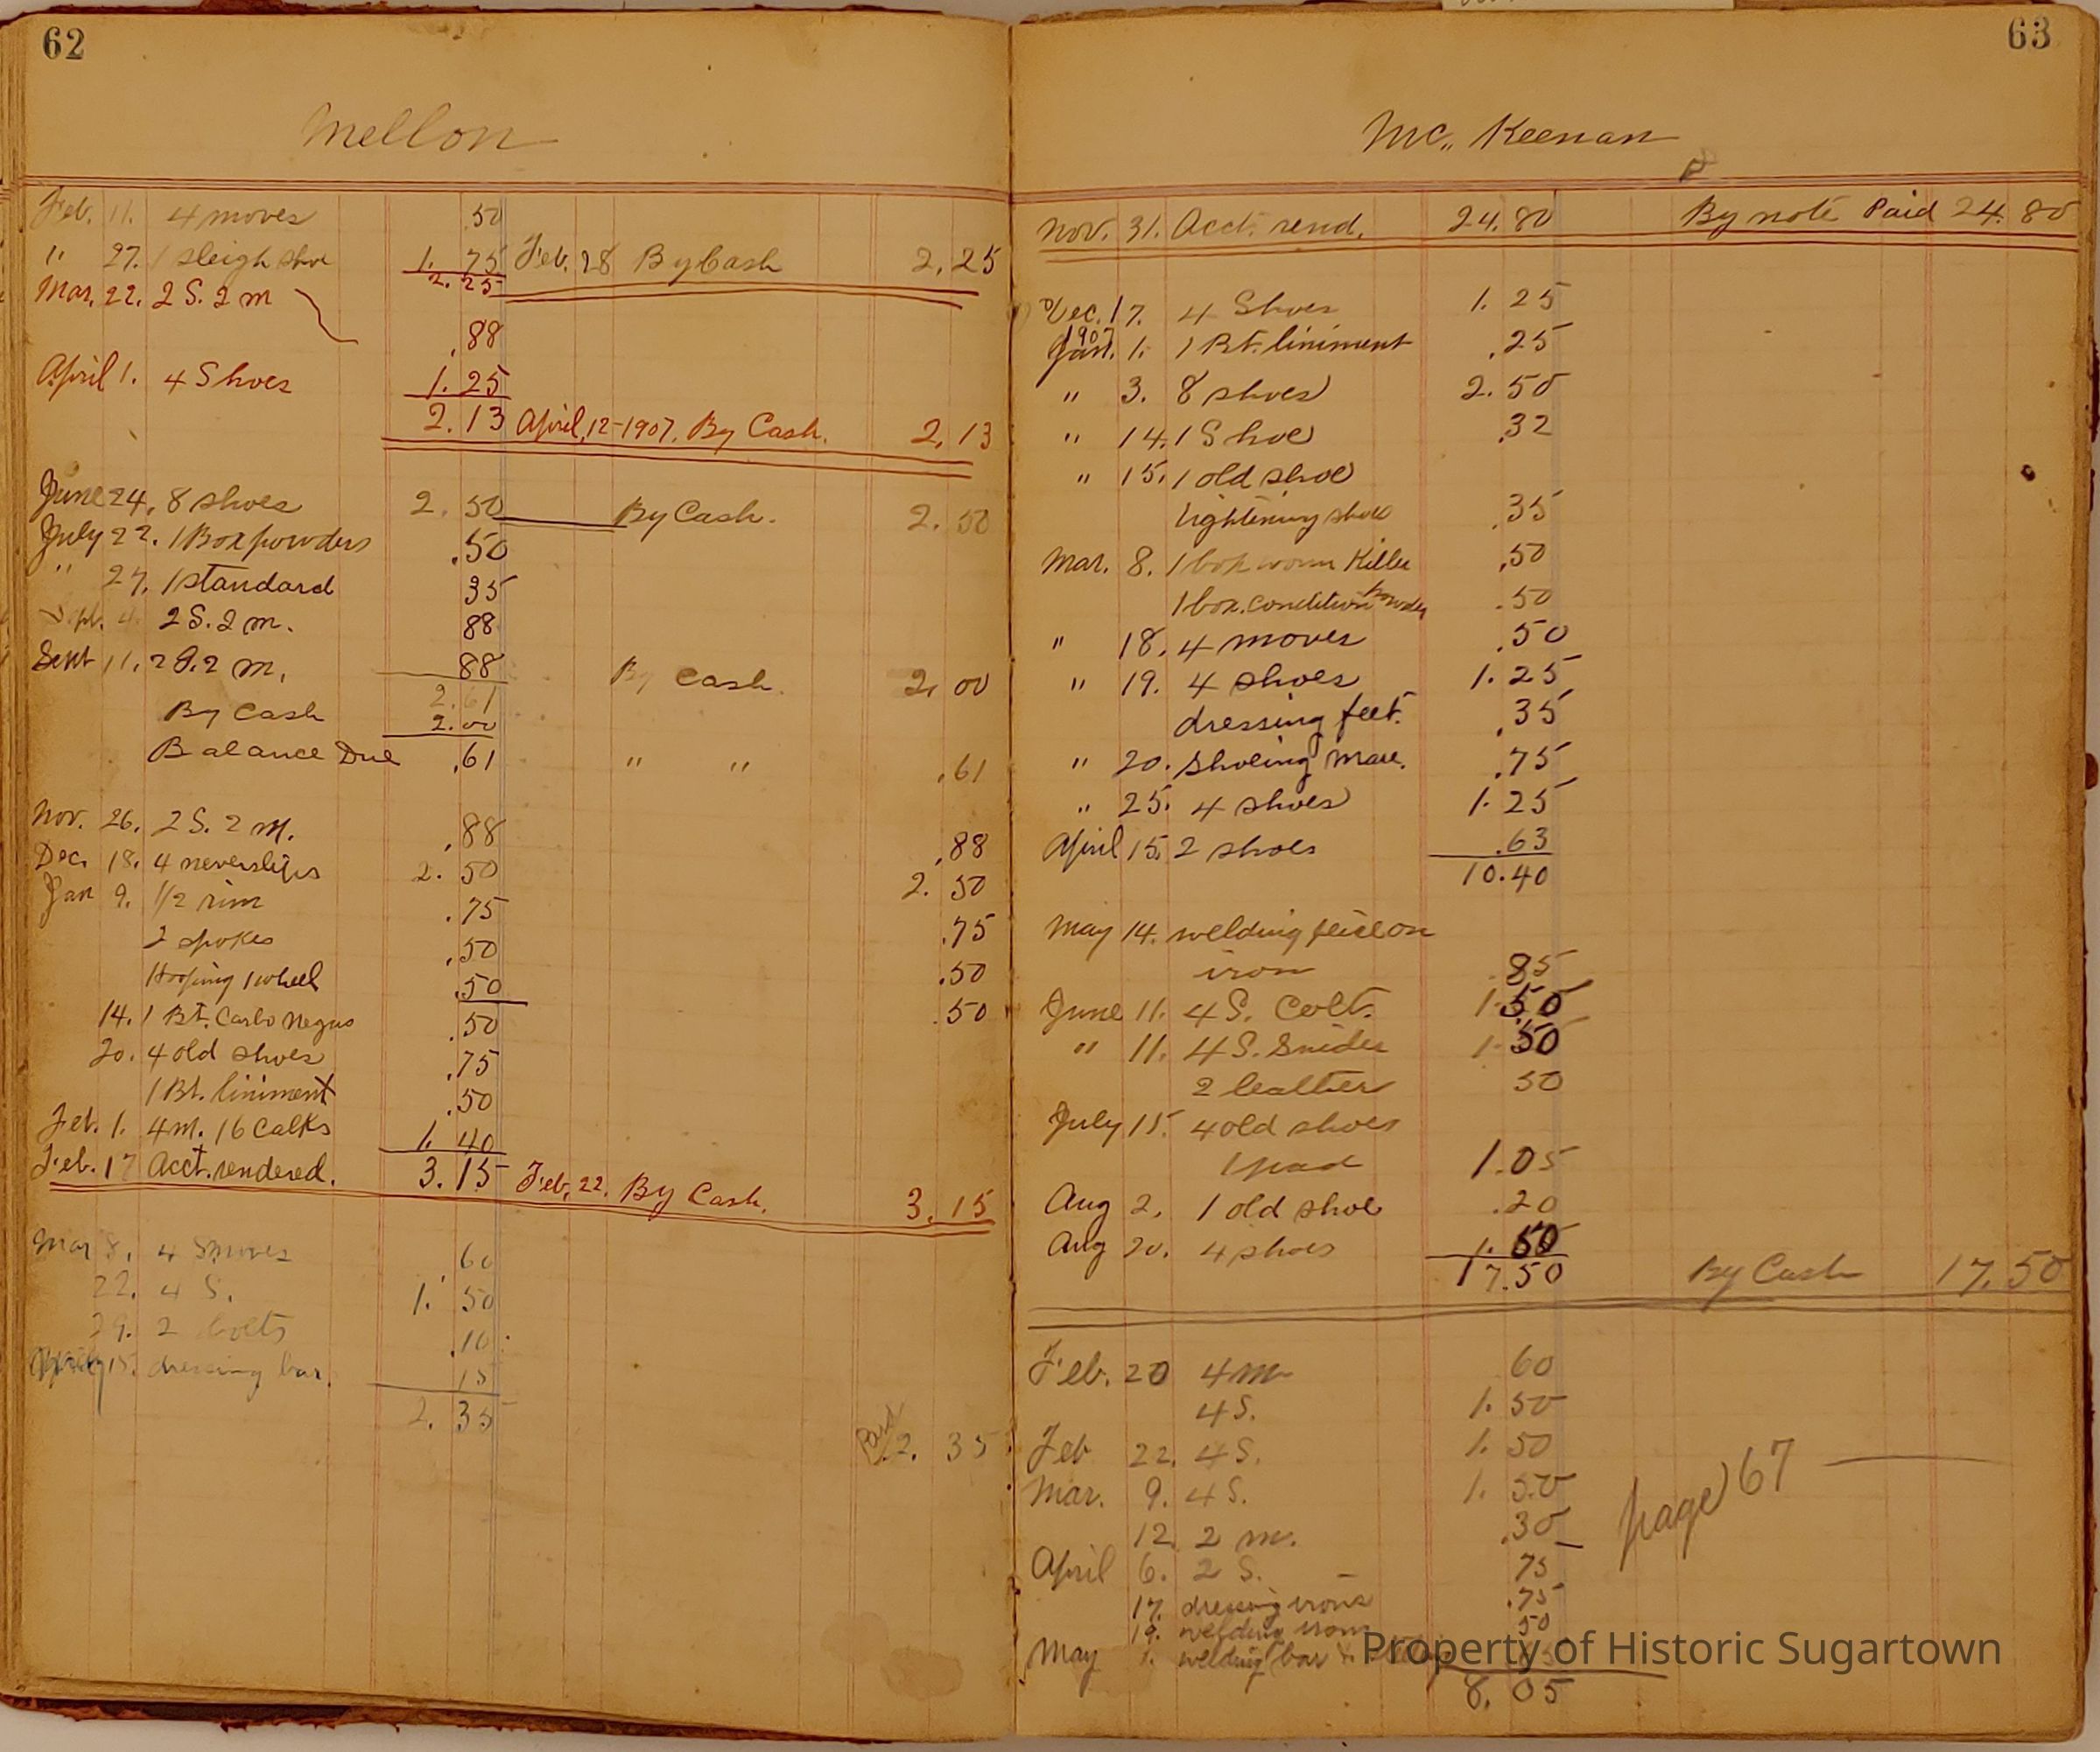 62
Mellon
Feb. 11. 4 moves .50
" 27. 1 sleigh shoe 1.75 Feb. 28 By Cash 2.25
2.25
Mar. 22. 2 S. 2 m
.88
April 1. 4 Shoes 1.25
2.13 April, 12-1907. By Cash. 2.13
June 24. 8 shoes 2.50 By Cash. 2.50
July 22. 1 Box powders .50
" 27. 1 standard 35
4. 2 S. 2 m. 88
Sept 11. 2 S. 2 m. 88 By Cash. 2.00
2.61
By Cash 2.00
Balance Due .61 " " .61
Nov. 26. 2 S. 2 m. .88 .88
Dec. 18. 4 neverslips 2.50 2.50
Jan 9. 1/2 rim .75 .75
2 spokes .50 .50
Hooping 1 wheel .50 .50
14. 1 Bt. Carbo Negus .50
20. 4 old shoes .75
1 Bt. liniment .50
Feb. 1. 4 m. 16 Calks 1.40
Feb. 17 Acct. rendered. 3.15 Feb. 22. By Cash. 3.15
Mar 8. 4 moves 60
22. 4 S. 1.50
29. 2 bolts .10
15. dressing bar. 15
2.35
Paid 2.35
63
Mc. Keenan
Nov. 31. Acct. rend. 24.80 By note Paid 24.80
Dec. 17. 4 Shoes 1.25
1907
Jan. 1. 1 Bt. liniment .25
" 3. 8 shoes 2.50
" 14. 1 Shoe .32
" 15. 1 old shoe
tightening shoe .35
Mar. 8. 1 box worm Killer .50
1 box. condition powder .50
" 18. 4 moves .50
" 19. 4 shoes 1.25
dressing feet. .35
" 20. shoeing mare. .75
" 25. 4 shoes 1.25
April 15. 2 shoes .63
10.40
May 14. welding
iron .85
June 11. 4 S. Colt. 1.50
" 11. 4 S. Snider 1.50
2 leather 50
July 15. 4 old shoes
1 pad 1.05
Aug 2. 1 old shoe .20
Aug 20. 4 shoes 1.50
17.50 By Cash 17.50
Feb. 20 4 m 60
4 S. 1.50
Feb 22. 4 S. 1.50
Mar. 9. 4 S. 1.50
12. 2 m. .30
page 67
April 6. 2 S. 75
17. dressing irons .75
19. welding irons 50
May 1. welding bar
8.05
Property of Historic Sugartown